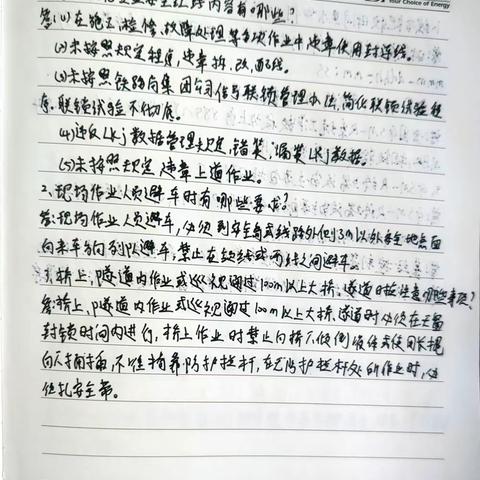 Your Choice of Energy
安全红线内容有哪些?
答:(1)在施工检修、故障处理等各次作业中违章使用封连线。
(2)未按照规定程序,违章拆、改、配线。
(3)未按照铁路局集团公司信号联锁管理办法,简化联锁试验程
序,联锁试验不彻底。
(4)违反LKJ数据管理规定,错装,漏装LKJ数据。
(5)未按照规定,违章上道作业。
2、现场作业人员避车时有哪些要求?
答:现场作业人员避车,必须到安全岛或线路外侧3m以外安全地点面
向来车方向列队避车,禁止在线或两线之间避车。
3、桥上,隧道内作业或巡视通过100m以上大桥、隧道时注意哪些事项?
答:桥上,隧道内作业或巡视通过100m以上大桥、隧道时必须在天窗
封锁时间内进行,桥上作业时禁止向桥下倾倒
向下,不准倚靠防护栏杆,在无防护栏杆处所作业时,必
须扎安全带。